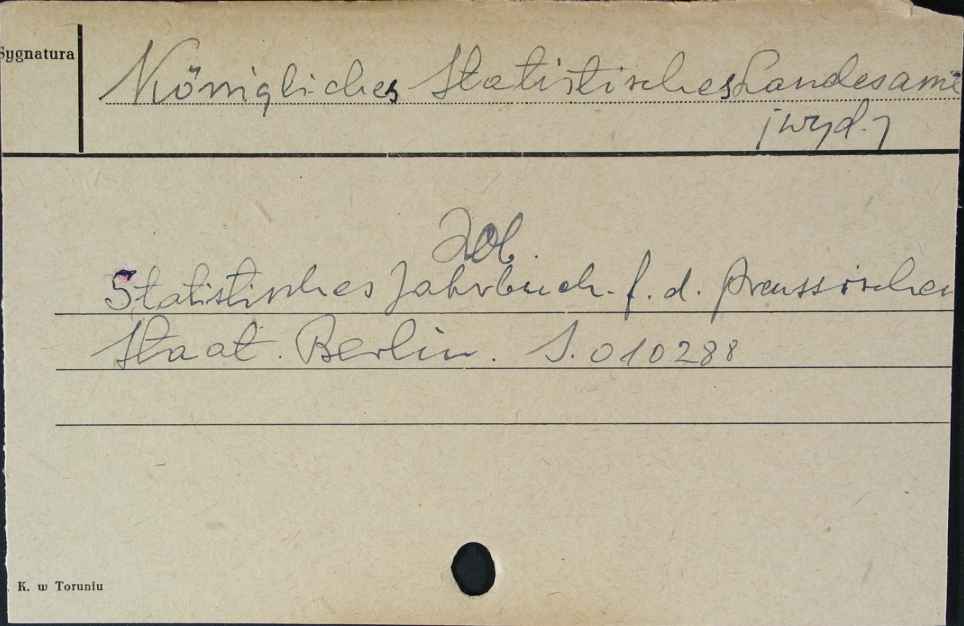 Sygnatura
Königliches Statistisches Landesamt
/wyd./
Zob.
Statistisches Jahrbuch f. d. Preussischen
Staat. Berlin. S.010288
K. w Toruniu